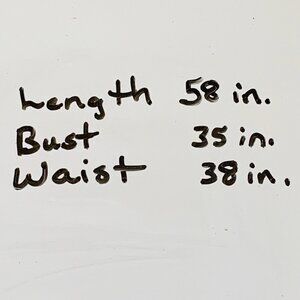 Length 58 in.
Bust 35 in.
Waist 38 in.